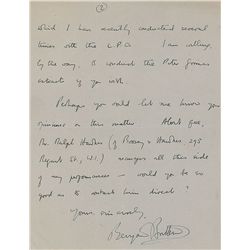 (2)
which I have recently conducted several
times with the L.P.O. I am willing,
by the way, to conduct the Peter Grimes
extracts if you wish.
Perhaps you could let me know your
opinions on this matter. About fees,
Mr. Ralph Hawkes (of Boosey & Hawkes, 295
Regent St, W.1.) manages all this side
of my performances — would you be so
good as to contact him direct?
Yours sincerely,
Benjamin Britten